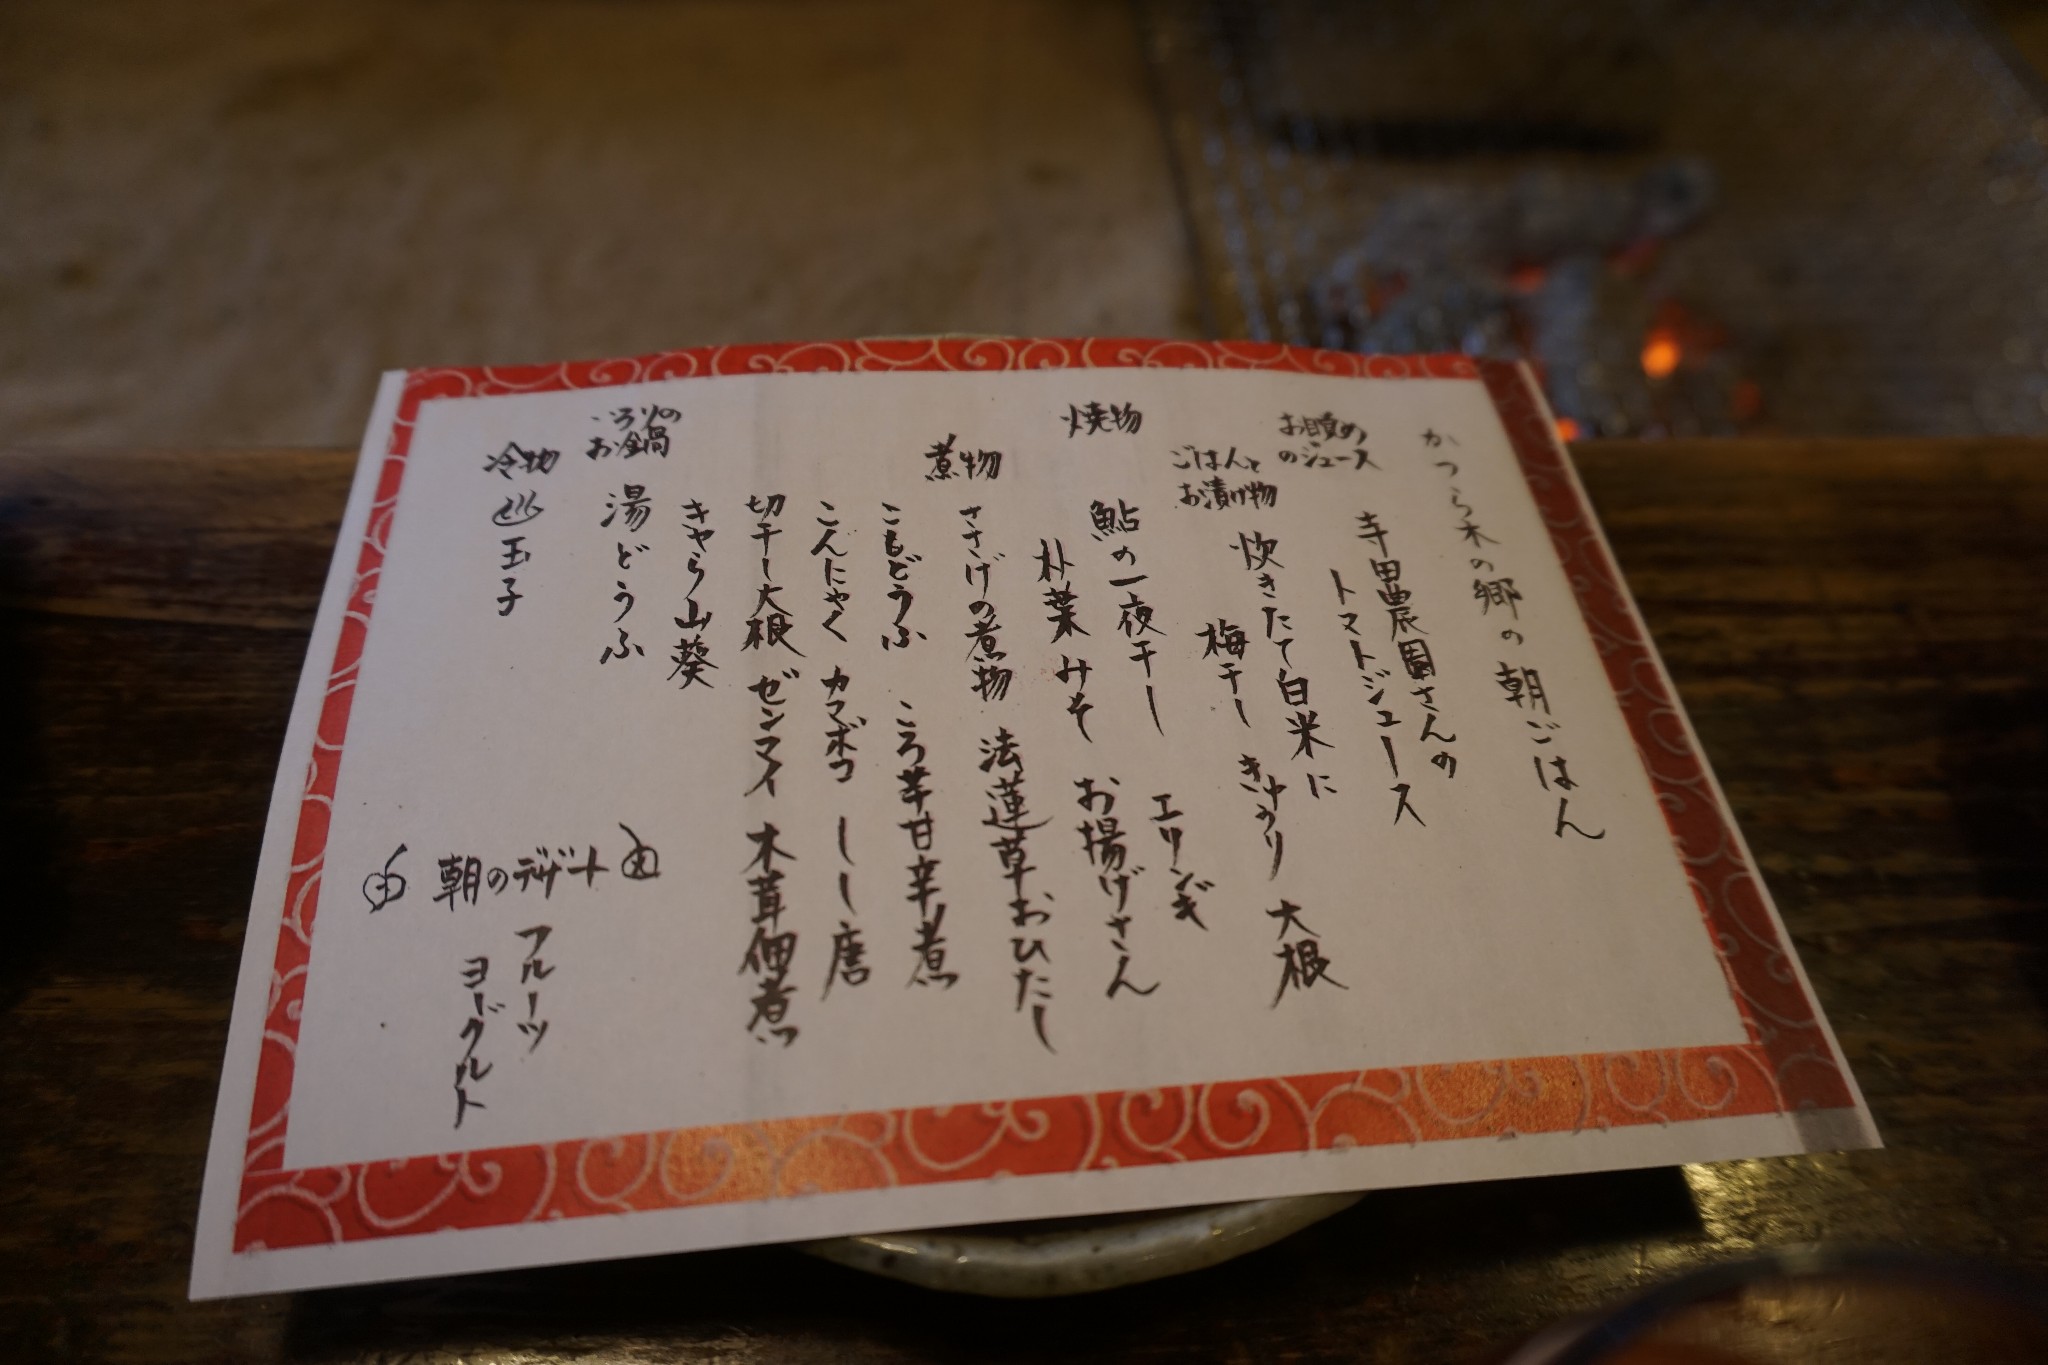 かつら木の郷の朝ごはん
お目覚め
のジュース
寺田農園さんの
トマトジュース
ごはんと
お漬け物
炊きたて白米に
梅干し きゅうり 大根
焼物
鮎の一夜干し エリンギ
朴葉みそ お揚げさん
煮物
ささげの煮物 法蓮草おひたし
こもどうふ ころ芋甘辛煮
こんにゃく カマボコ しし唐
切干し大根 ゼンマイ 木茸佃煮
キャラ山葵
いろりの
お鍋
湯どうふ
冷物
♨玉子
朝のデザート
フルーツ
ヨーグルト